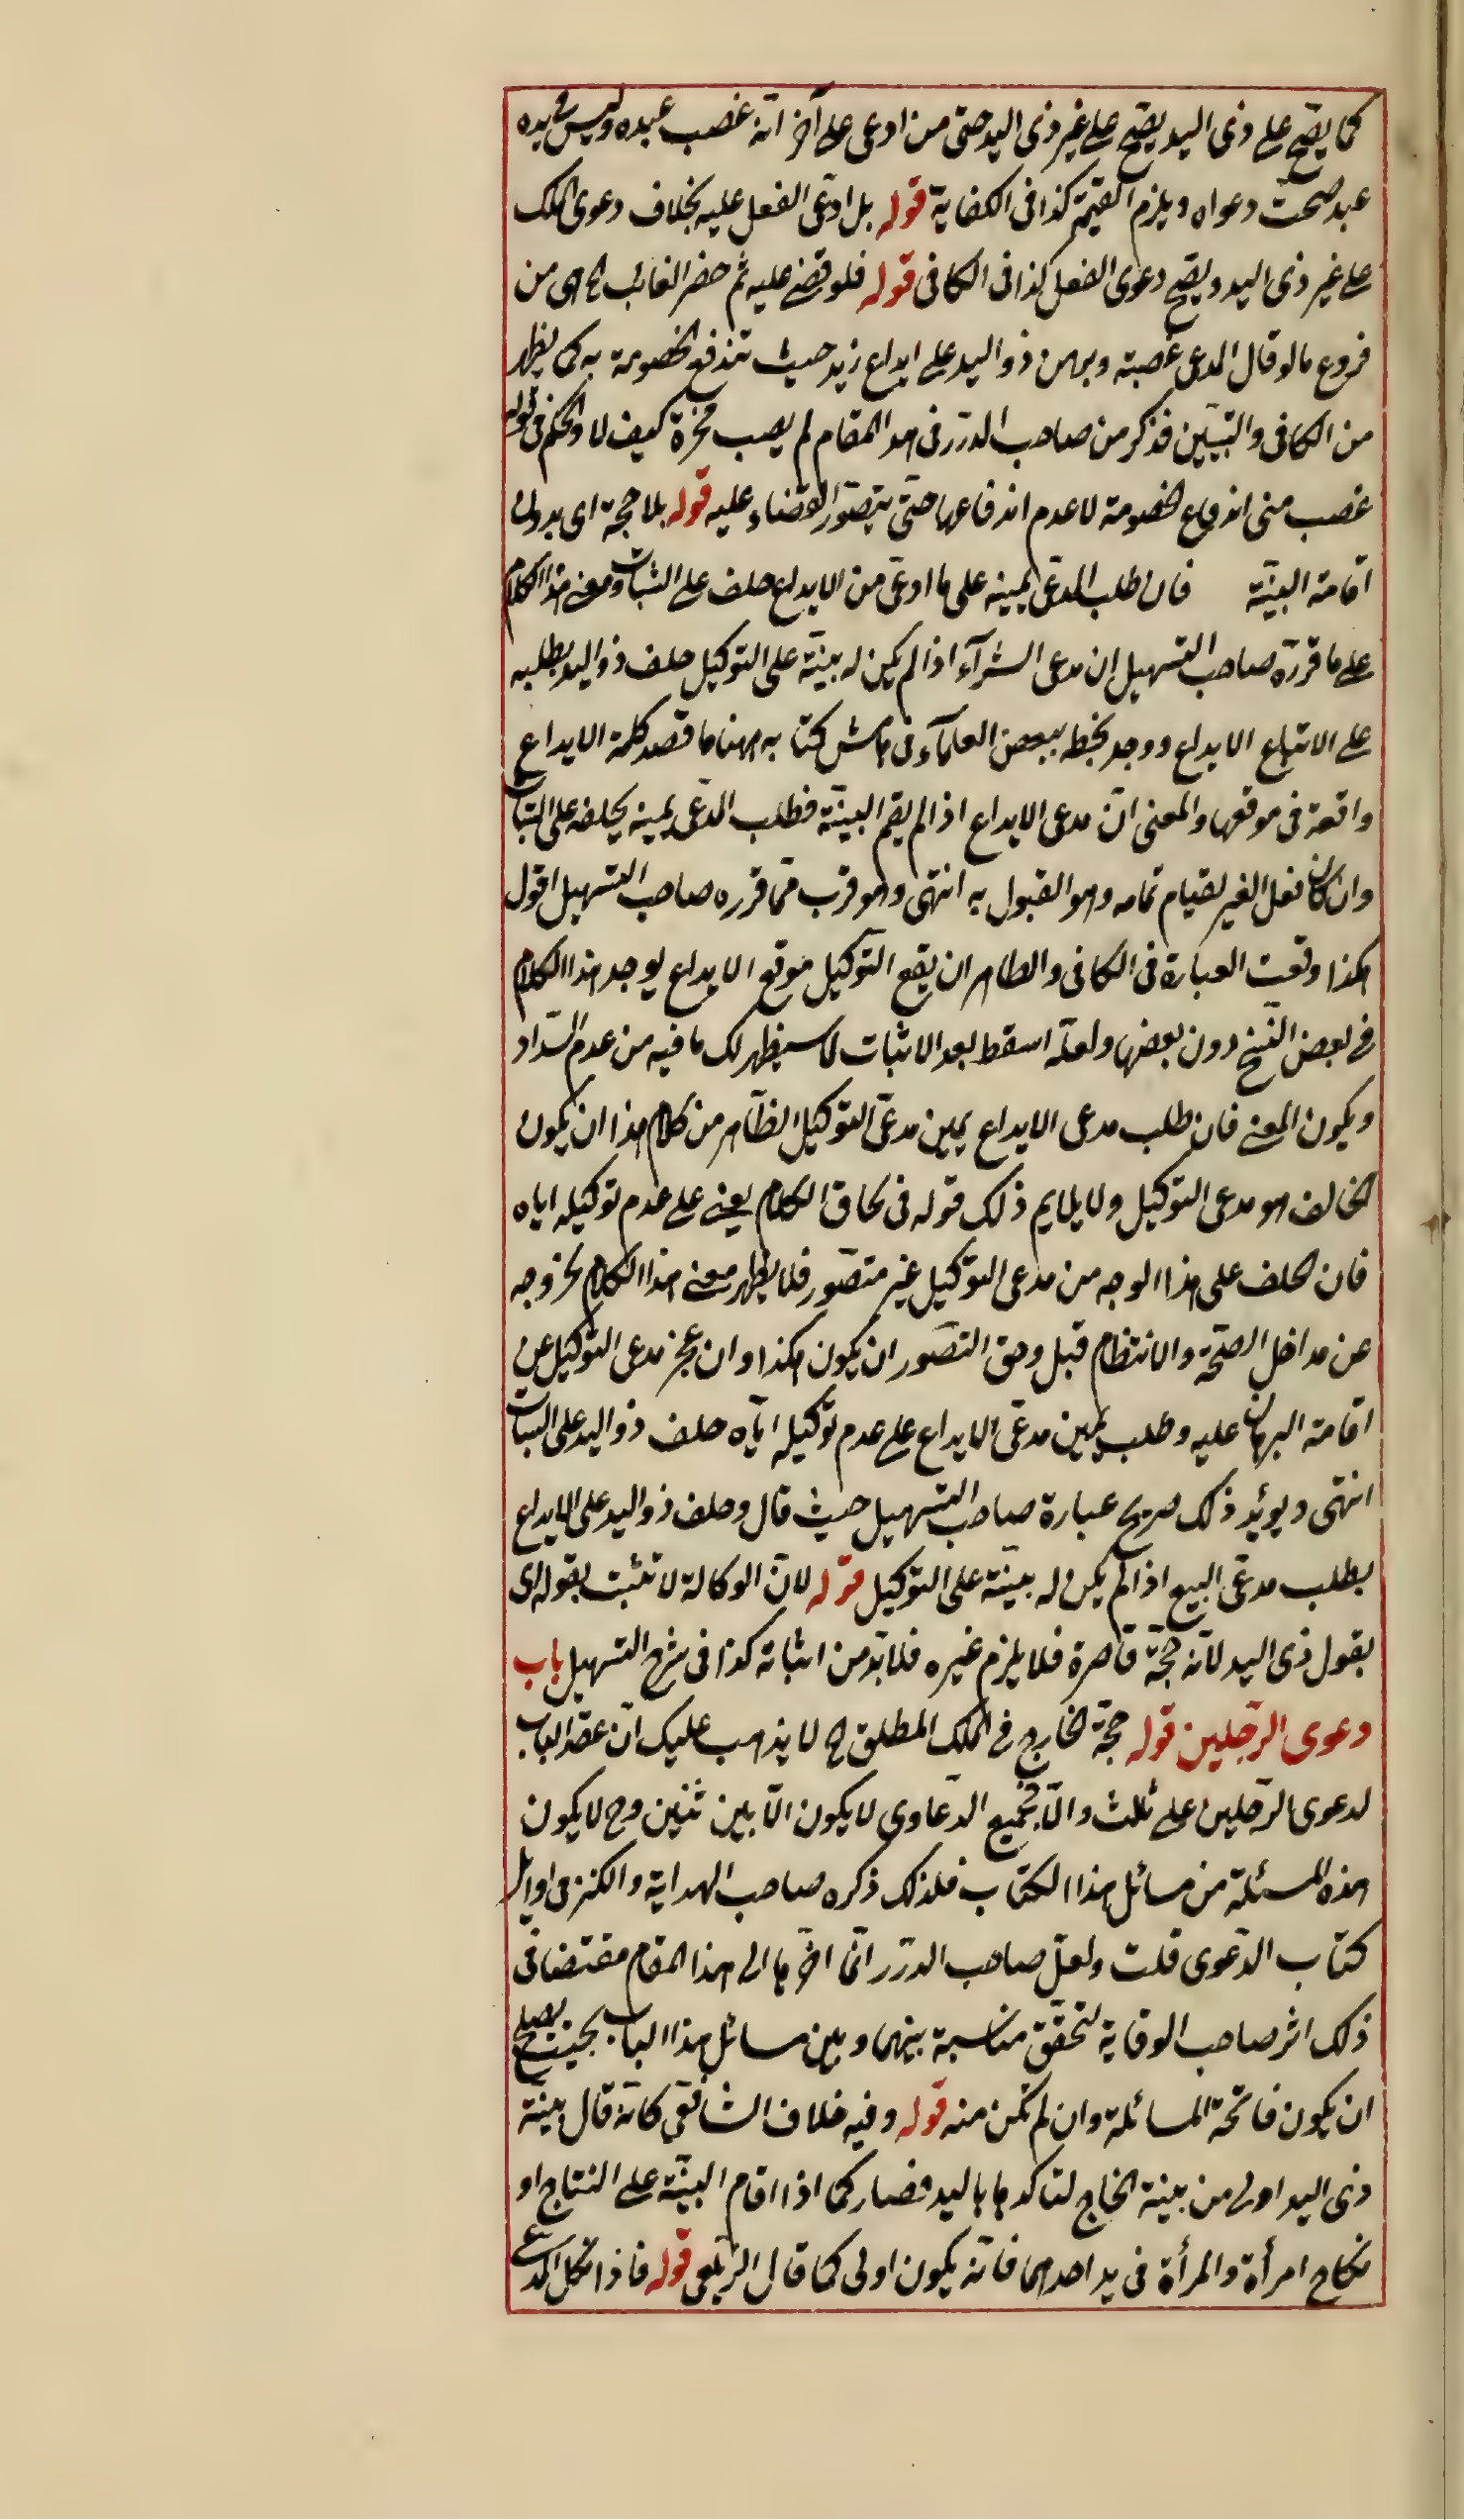 كما يصح على ذى اليد يصح على غير ذى اليد حتى من ادعى على آخر انه غصب عبده وليس فى يده
عبد صحت دعواه ويلزم القيمة كذا فى الكفاية قوله بل ادعى الفعل عليه بخلاف دعوى الملك
على غير ذى اليد ويصح دعوى الفعل كذا فى الكافى قوله فلو قضى عليه ثم حضر الغائب الخ هى من
فروع ما لو قال المدعى غصبته وبرهن ذو اليد على ايداع زيد حيث تندفع الخصومة به كما يظهر
من الكافى والتبيين فذكر من صاحب الدرر فى هذا المقام لم يصب محزه كيف لا والحكم فى قوله
غصب منى اندفاع الخصومة لا عدم اندفاعها حتى يتصور القضاء عليه قوله بلا حجة اى بدون
اقامة البينة فان طلب المدعى يمينه على ما ادعى من الايداع حلف على الثبات ومعنى هذا الكلام
على ما قرره صاحب التسهيل ان مدعى الشرآء اذا لم يكن له بينة على التوكيل حلف ذو اليد بطلبه
على الايداع ووجد بخط بعض العلمآء فى هامش كتابه ههنا ما قصد كلمة الايداع
واقعة فى موقعها والمعنى ان مدعى الايداع اذا لم يقم البينة فطلب المدعى يمينه يحلفه على الثبات
وان كان فعل الغير لقيام تمامه وهو القبول به انتهى وهو قرب مما قرره صاحب التسهيل اقول
هكذا وقعت العبارة فى الكافى والظاهر ان يقع التوكيل موقع الايداع يوجد هذا الكلام
فى بعض النسخ دون بعضها ولعله اسقط بعد الاثبات لما سيظهر لك ما فيه من عدم السداد
ويكون المعنى فان طلب مدعى الايداع يمين مدعى التوكيل الظاهر من كلام هذا ان يكون
الحالف هو مدعى التوكيل ولا يلايم ذلك قوله فى لحاق الكلام يعنى على عدم توكيله اياه
فان الحلف على هذا الوجه من مدعى التوكيل غير متصور فلا يظهر معنى هذا الكلام لخروجه
عن مداخل الصحة والانتظام قبل وحق التصور ان يكون هكذا وان عجز مدعى التوكيل عن
اقامة البرهان عليه وطلب يمين مدعى الايداع على عدم توكيله اياه حلف ذو اليد على البتات
انتهى ويؤيد ذلك صريح عبارة صاحب التسهيل حيث قال وحلف ذو اليد على الايداع
بطلب مدعى البيع اذا لم يكن له بينة على التوكيل قوله لان الوكالة لا تثبت بقوله اى
بقول ذى اليد لانه حجة قاصرة فلا يلزم غيره فلا بد من اثباته كذا فى شرح التسهيل باب
دعوى الرجلين قوله حجة الخارج فى الملك المطلق الخ لا يذهب عليك ان عقد الباب
لدعوى الرجلين على ثلث والا فجميع الدعاوى لا يكون الا بين ثنين وح لا يكون
هذه المسئلة من مسائل هذا الكتاب فلذلك ذكره صاحب الهداية والكنز فى اوايل
كتاب الدعوى قلت ولعل صاحب الدرر انما اخرها الى هذا المقام مقتضا فى
ذلك اثر صاحب الوقاية لتحقق مناسبة بينها وبين مسائل هذا الباب بحيث يصلح
ان يكون فاتحة المسائلة وان لم تكن منه قوله وفيه خلاف الشافعى كانه قال بينة
ذى اليد اولى من بينة الخارج لتاكدها باليد فصار كما اذا اقام البينة على النتاج او
نكاح امرأة والمرأة فى يد احدهما فانه يكون اولى كما قال الزيلعى قوله فاذا نكل المدعى